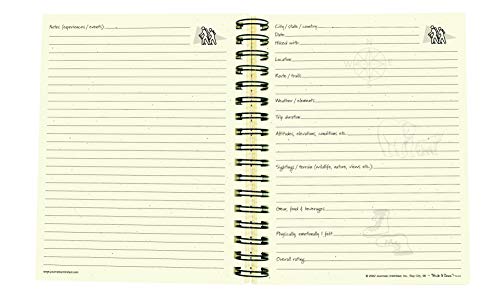 Notes (experiences / events)
www.journalsunlimited.com
City / state / country
Date
Hiked with
Location
Route / trail
Weather / elements
Trip duration
Altitudes, elevations, conditions etc.
Sightings / terrain (wildlife, nature, views etc.)
Gear, food & beverages
Physically emotionally I felt
Overall rating
© 2007 Journals Unlimited, Inc. Bay City, MI